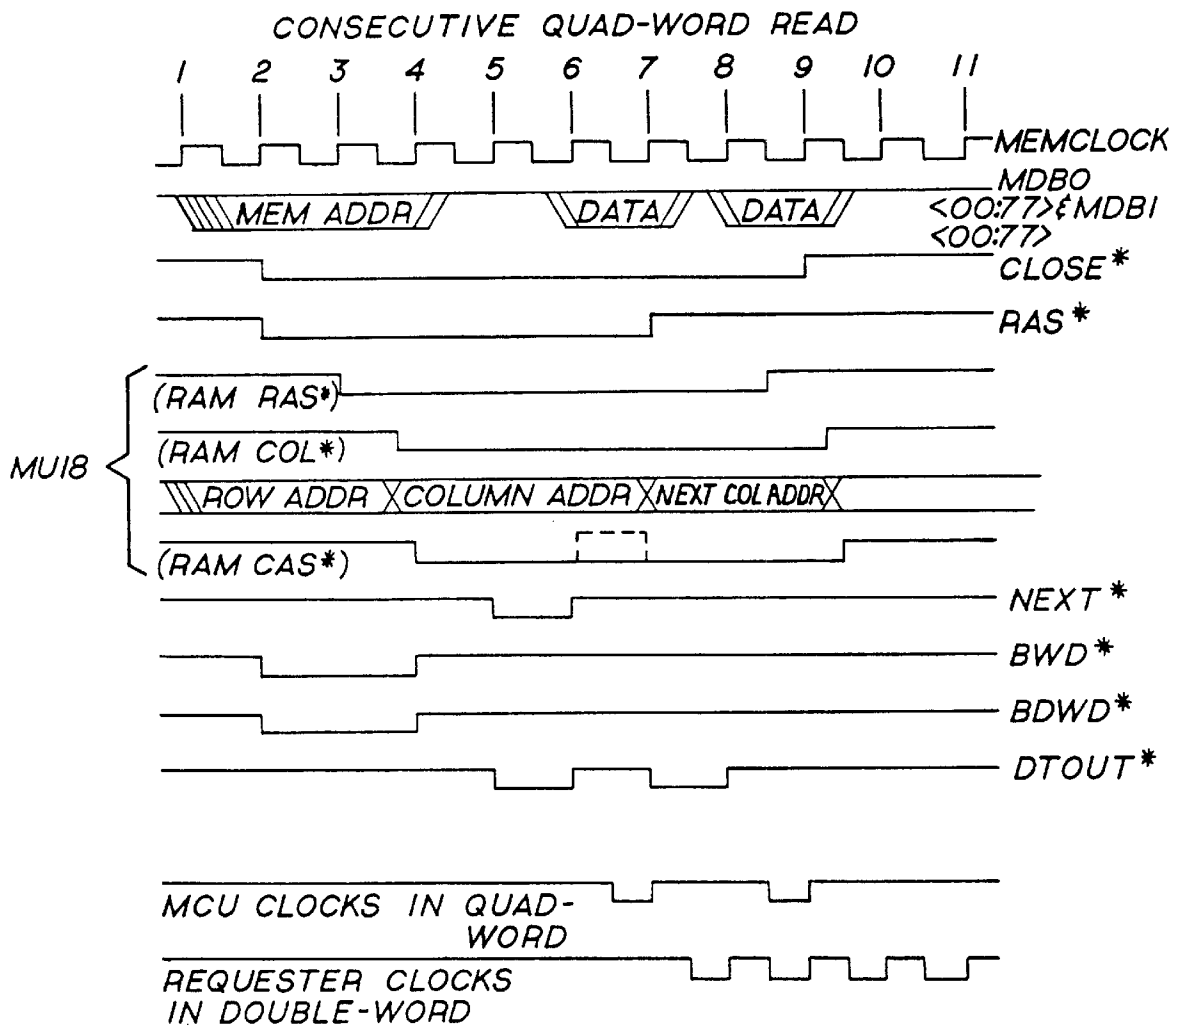 CONSECUTIVE QUAD-WORD READ
1 2 3 4 5 6 7 8 9 10 11
MEMCLOCK
MDBO
<00:77>&MDBI
<00:77>
MEM ADDR DATA DATA
CLOSE*
RAS*
(RAM RAS*)
(RAM COL*)
MU18
ROW ADDR COLUMN ADDR NEXT COL ADDR
(RAM CAS*)
NEXT*
BWD*
BDWD*
DTOUT*
MCU CLOCKS IN QUAD-
WORD
REQUESTER CLOCKS
IN DOUBLE-WORD